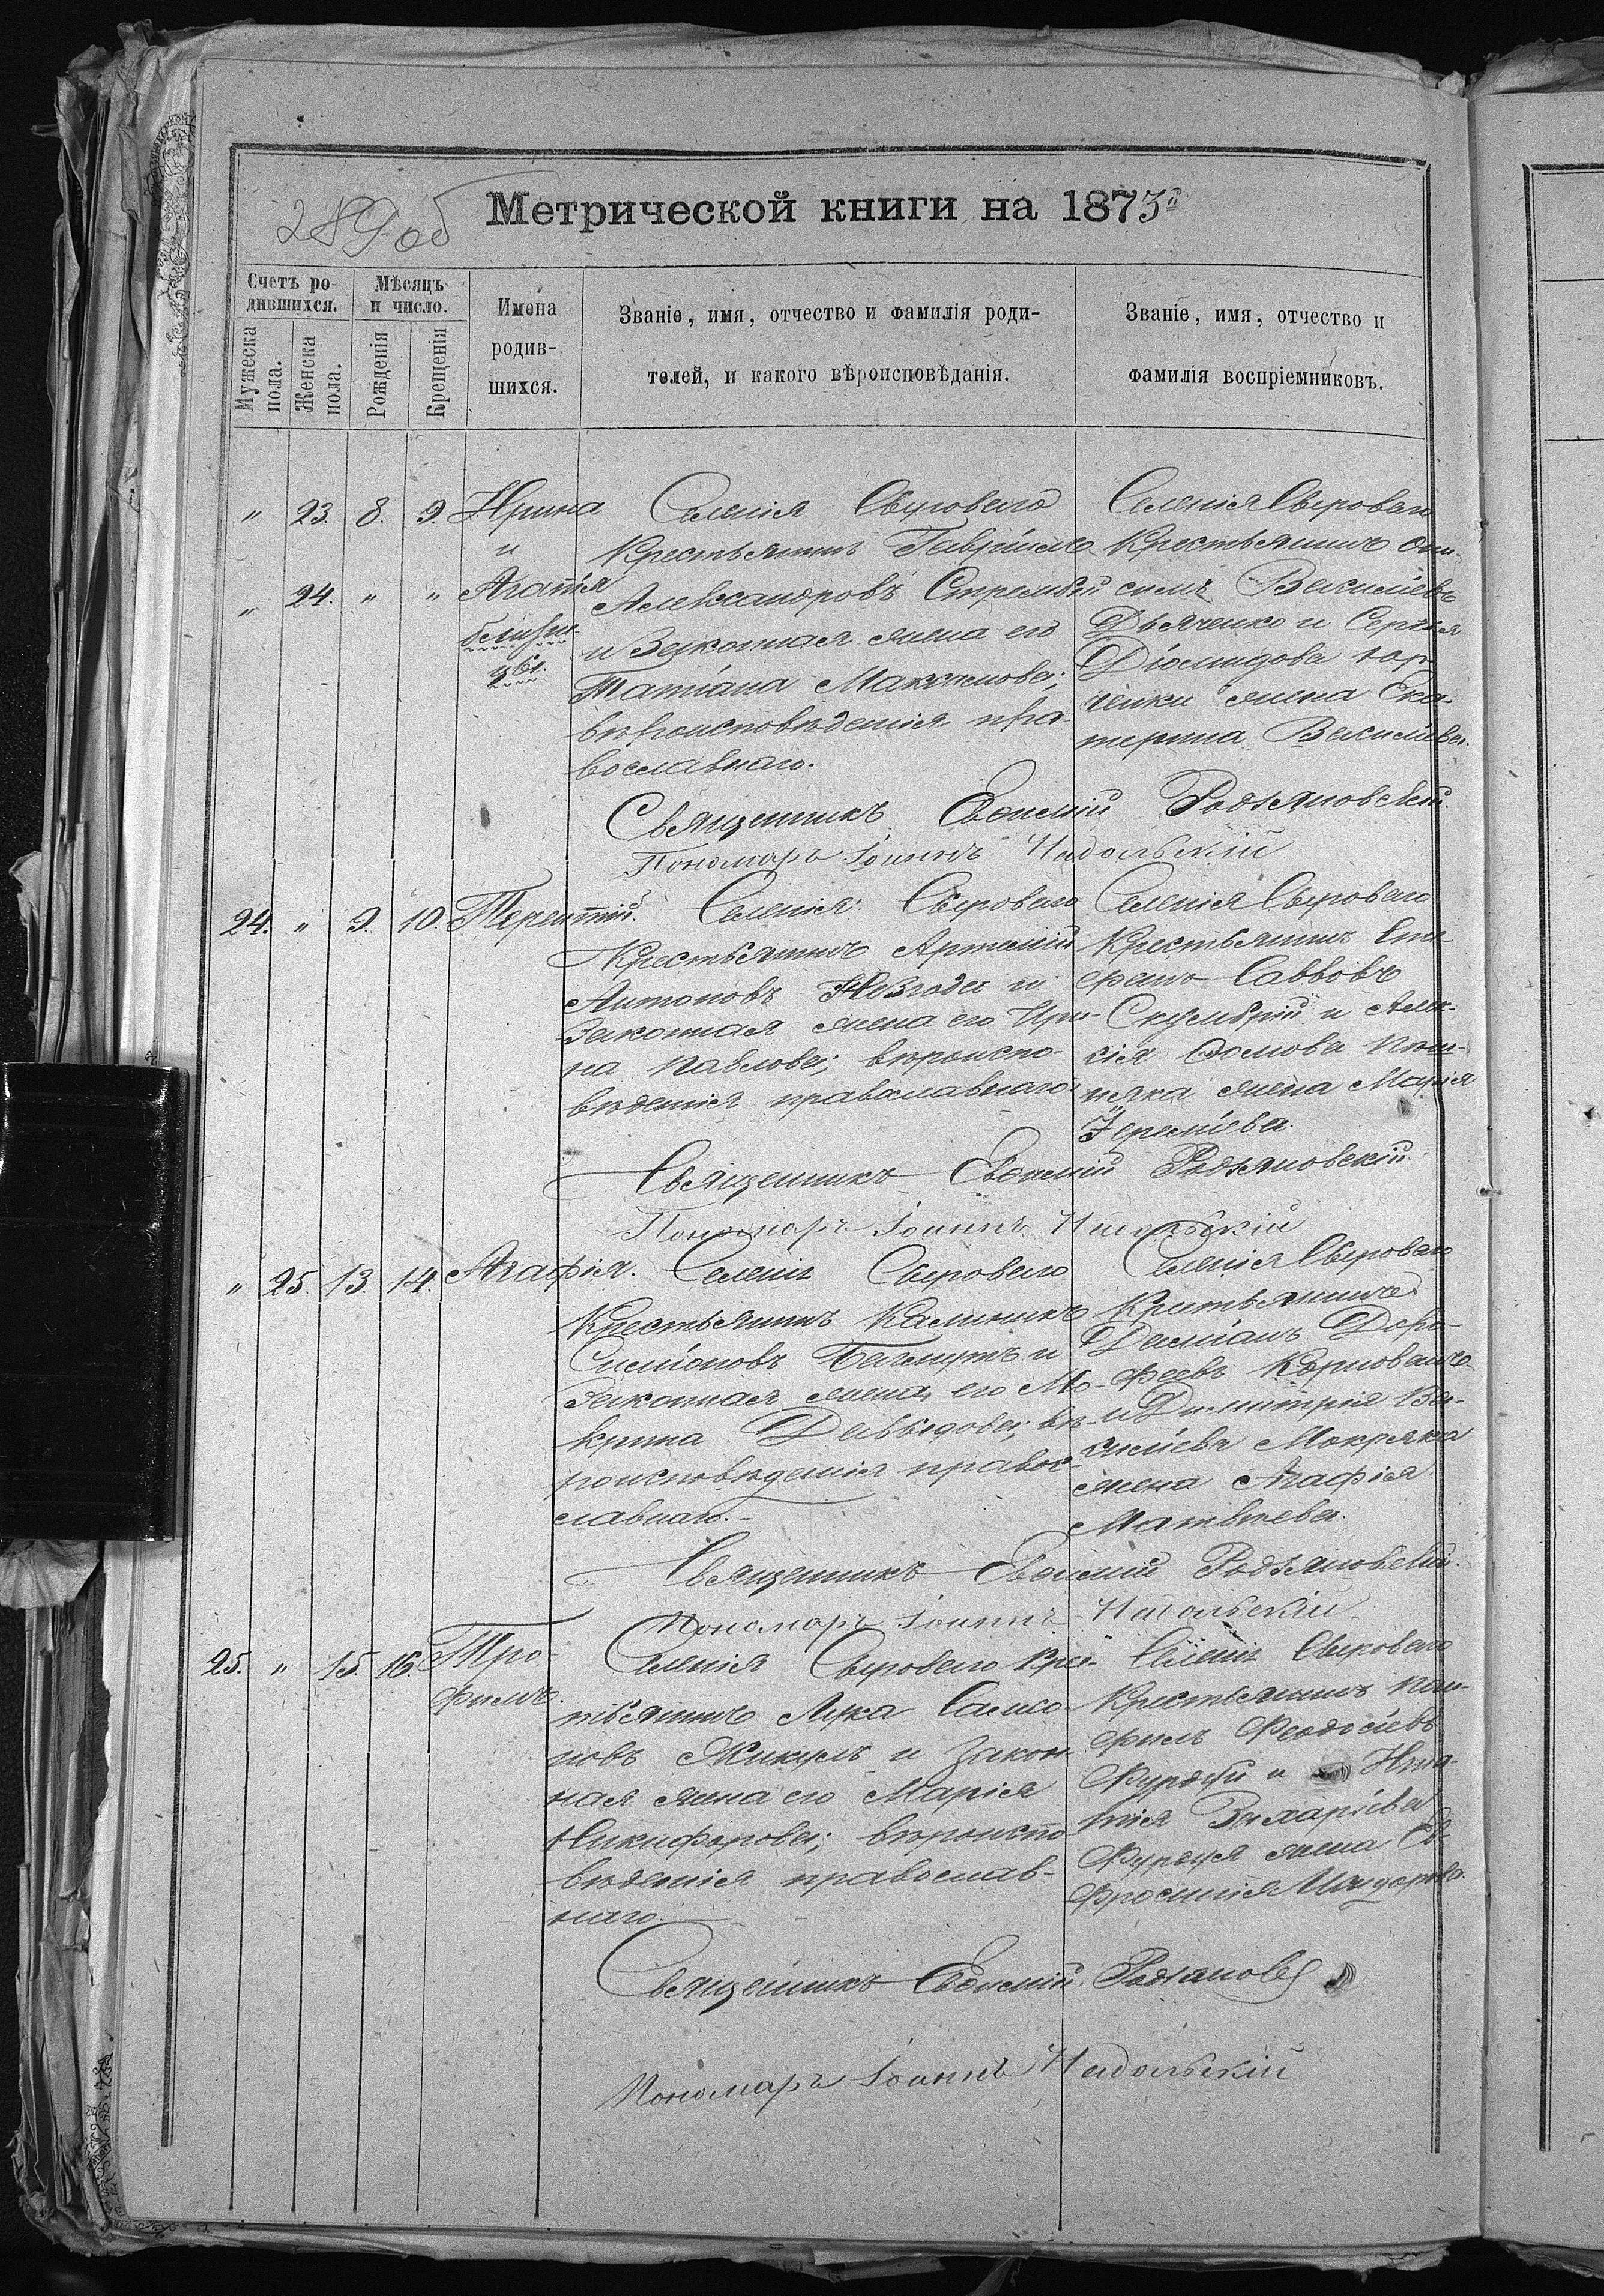 289 об
Метрической книги на 1873й
Счетъ ро-
дившихся.
Мужеска пола.
Женска пола.
Мѣсяцъ
и число.
Рожденія
Крещенія
Имена
родив-
шихся.
Званіе, имя, отчество и фамилія роди-
телей, и какого вѣроисповѣданія.
Званіе, имя, отчество и
фамилія воспріемниковъ.
" 23. 8. 9. Ирина
и
" 24. " " Агапія
близне-
цы.
Селенія Сыроваго
Крестьянинъ Гавріилъ
Александровъ Стрембій
и Законная жена его
Татіана Максимова;
вѣроисповѣданія пра-
вославнаго.
Селенія Сыроваго
Крестьянинъ Они-
симъ Васильевъ
Дьяченко и Сергѣя
Діомидова
ченки жена Ека-
терина Васильева.
Священникъ Евѳимій Родзяновскій.
Пономарь Іоаннъ Надольскій
24. " 9. 10. Терентій.
Селенія Сыроваго
Крестьянинъ Артемій
Антоновъ Незгода и
Законная жена его Ири-
на Павлова; вѣроиспо-
вѣданія православнаго.
Селенія Сыроваго
Крестьянинъ Сте-
фанъ Саввовъ
Скумбрій и Алек-
сія Ѳомова
жена Марія
Іереміева.
Священникъ Евѳимій Родзяновскій.
Пономарь Іоаннъ Надольскій
" 25. 13. 14. Агафія.
Селенія Сыроваго
Крестьянинъ Калинникъ
Симіоновъ Бахмутъ и
Законная жена его Ма-
крина Давыдова; вѣ-
роисповѣданія правос-
лавнаго.-
Селенія Сыроваго
Крестьянинъ
Даміанъ Доро-
феевъ Корнованъ
и Димитрія Ва-
сильева Мокряка
жена Агафія
Матвѣева.
Священникъ Евѳимій Родзяновскій.
Пономарь Іоаннъ Надольскій
25. " 15. 16. Тро-
фимъ.
Селенія Сыроваго Крес-
тьянинъ Лука Самсо-
новъ Жикулъ и Закон-
ная жена его Марія
Никифорова; вѣроиспо
вѣданія православ-
наго.
Селенія Сыроваго
Крестьянинъ Пан-
филъ Феодосіевъ
Фурдуй и Игна-
тія Захаріева
Фурдуя жена Ев-
фросинія
Священникъ Евѳимій Родзяновс
Пономарь Іоаннъ Надольскій